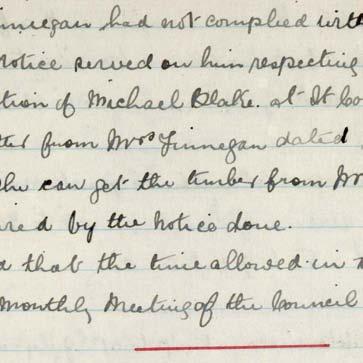 innegan had not complied with
Notice served on him respecting
tion of Michael Blake. at St Co
ter from Mrs Finnegan dated
she can get the timber from Mr
ired by the Notice done.
d that the time allowed in
Monthly Meeting of the Council